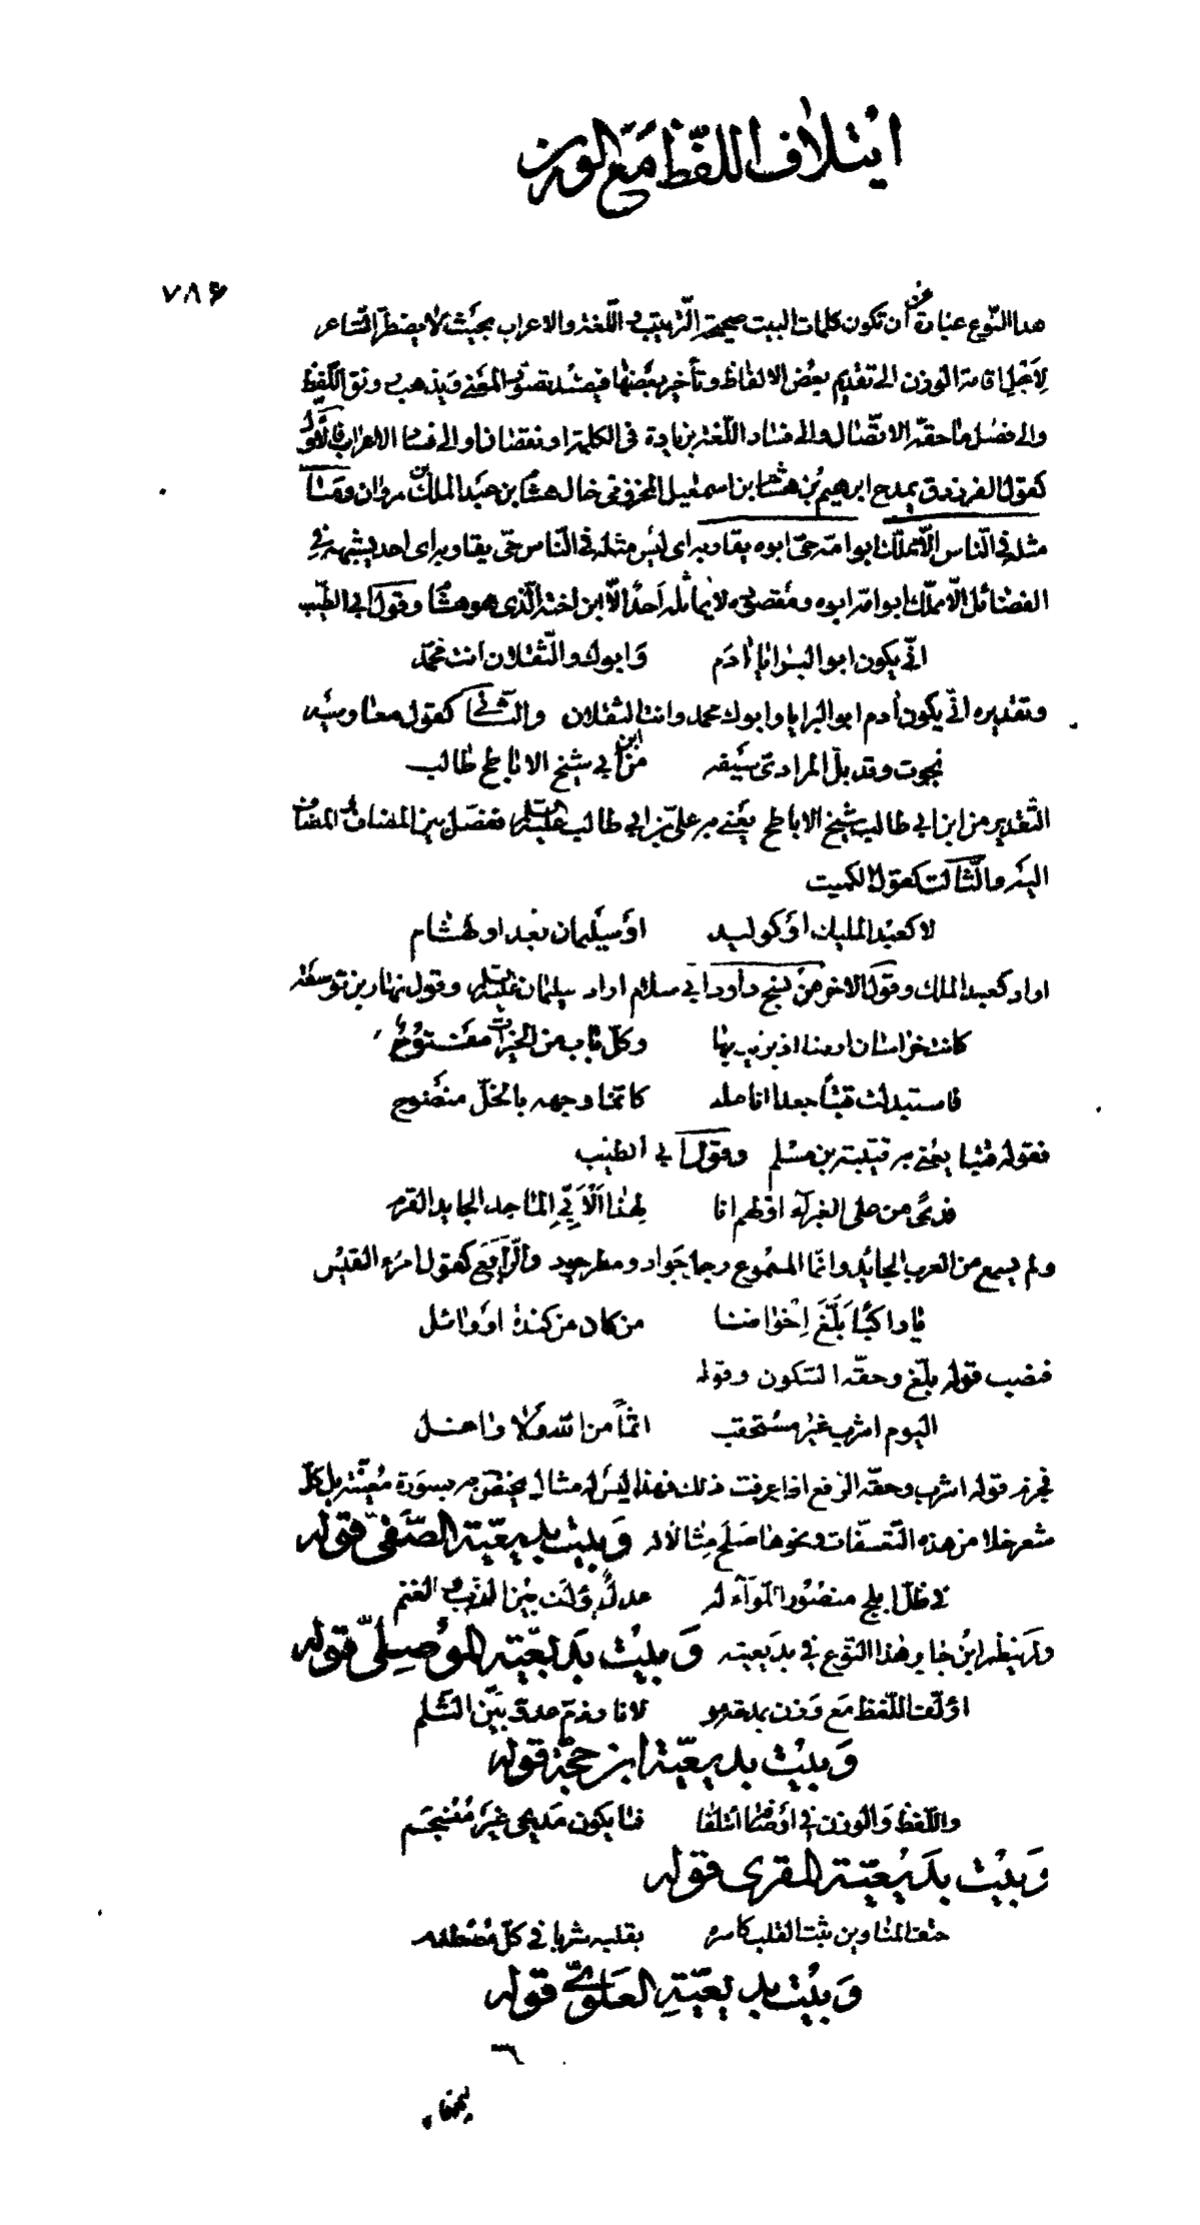 ائتلاف اللفظ مع الوزن
٧٨٦
هذا النوع عبارة عن أن تكون كلمات البيت صحيحة الترتيب في اللغة والاعراب بحيث لا يضطر الشاعر
لاجل اقامة الوزن الى تقديم بعض الالفاظ وتأخير بعضها فيفسد تصور المعنى ويذهب رونق اللفظ
والى فصل ما حقه الاتصال والى فساد اللغة بزيادة في الكلمة او نقصان او الى فساد الاعراب فالاول
كقول الفرزدق يمدح ابرهيم بن هشام بن اسمعيل المخزومي خال هشام بن عبد الملك بن مروان وما
مثله في الناس الا مملكا ابو امه حي ابوه يقاربه اى ليس مثله في الناس حي يقاربه اى احد يشبهه في
الفضائل الا مملك ابو امه ابوه ومقصوده لا يماثله احد الا ابن اخته الذى هو هشام وقول ابي الطيب
انى يكون ابو البرايا آدم وابوك والثقلان انت محمد
وتقديره انى يكون آدم ابو البرايا وابوك محمد وانت الثقلان والثاني كقول معاوية
نجوت وقد بل المرادي سيفه من ابن ابي شيخ الاباطح طالب
التقدير من ابن ابي طالب شيخ الاباطح يعني به علي بن ابي طالب عليه السلام ففصل بين المضاف والمضاف
اليه والثالث كقول الكميت
لا كعبد المليك او كوليد او سليمان بعد او كهشام
اراد كعبد الملك وقول الاخر من نسج داود ابي سلام اراد سليمان عليه السلام وقول نهار بن توسعة
كانت خراسان ارضا اذ يزيد بها وكل باب من الخيرات مفتوح
فاستبدلت قتبا جعدا انامله كانما وجهه بالخل منضوح
فقوله قتبا يعني به قتيبة بن مسلم وقول ابي الطيب
فدى من على الغبراء اولهم انا لهذا الأبي الماجد الجايد القرم
ولم يسمع من العرب الجايد وانما المسموع رجل جواد ومطر جود والرابع كقول امرء القيس
يا راكبا بلغ اخواننا من كان من كندة او وائل
فنصب قوله بلغ وحقه السكون وقوله
اليوم اشرب غير مستحقب اثما من الله ولا واغل
فجزم قوله اشرب وحقه الرفع اذا عرفت ذلك فهذا ليس له مثال يختص به بصورة معينة بل كل
شعر خلا من هذه التعسفات ونحوها صلح مثالا له وبيت بديعية الصفي قوله
في ظل ابلج منصور اللواء له عدل يؤلف بين الذئب والغنم
ولم ينظم ابن جابر هذا النوع في بديعيته وبيت بديعية الموصلي قوله
اؤلف اللفظ مع وزن بمدحة لانا وذم عدو بين الثلم
وبيت بديعية ابن حجة قوله
واللفظ والوزن في اوصافه ائتلفا فما يكون مديحي غير منسجم
وبيت بديعية المقري قوله
حتف المناوين ثبت القلب كاسره بقلبه شربا في كل مصطدم
وبيت بديعية العلوي قوله